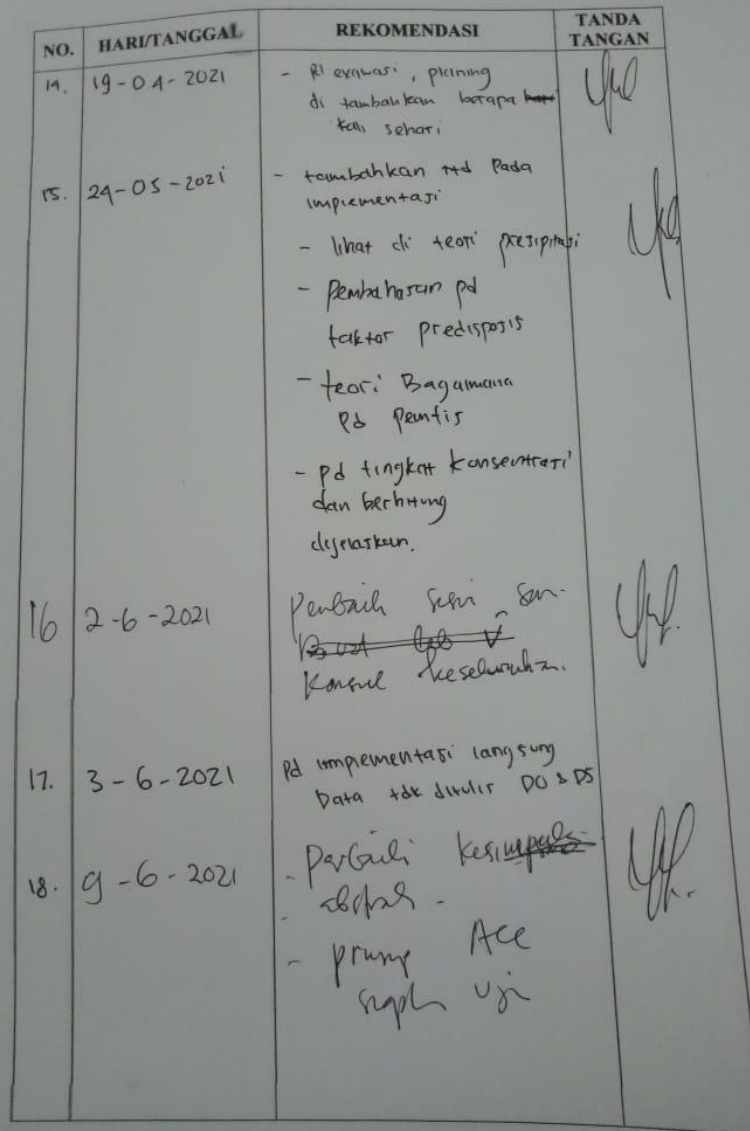 NO. HARI/TANGGAL REKOMENDASI TANDA TANGAN
14. 19-04-2021 - RI evaluasi, planing
di tambahkan berapa
kali sehari
15. 24-05-2021 - tambahkan ttd Pada
implementasi
- lihat di teori presipitasi
- Pembahasan pd
faktor predisposis
- teori Bagaimana
Pd
- pd tingkat konsentrasi
dan berhitung
dijelaskan.
16 2-6-2021 Perbaiki sesuai
Buat bab V
Konsul keseluruhan.
17. 3-6-2021 Pd implementasi langsung
Data tdk ditulis DO & DS
18. 9-6-2021 - Perbaiki Kesimpulan
- abstrak -
- prinsip Acc
siap Uji